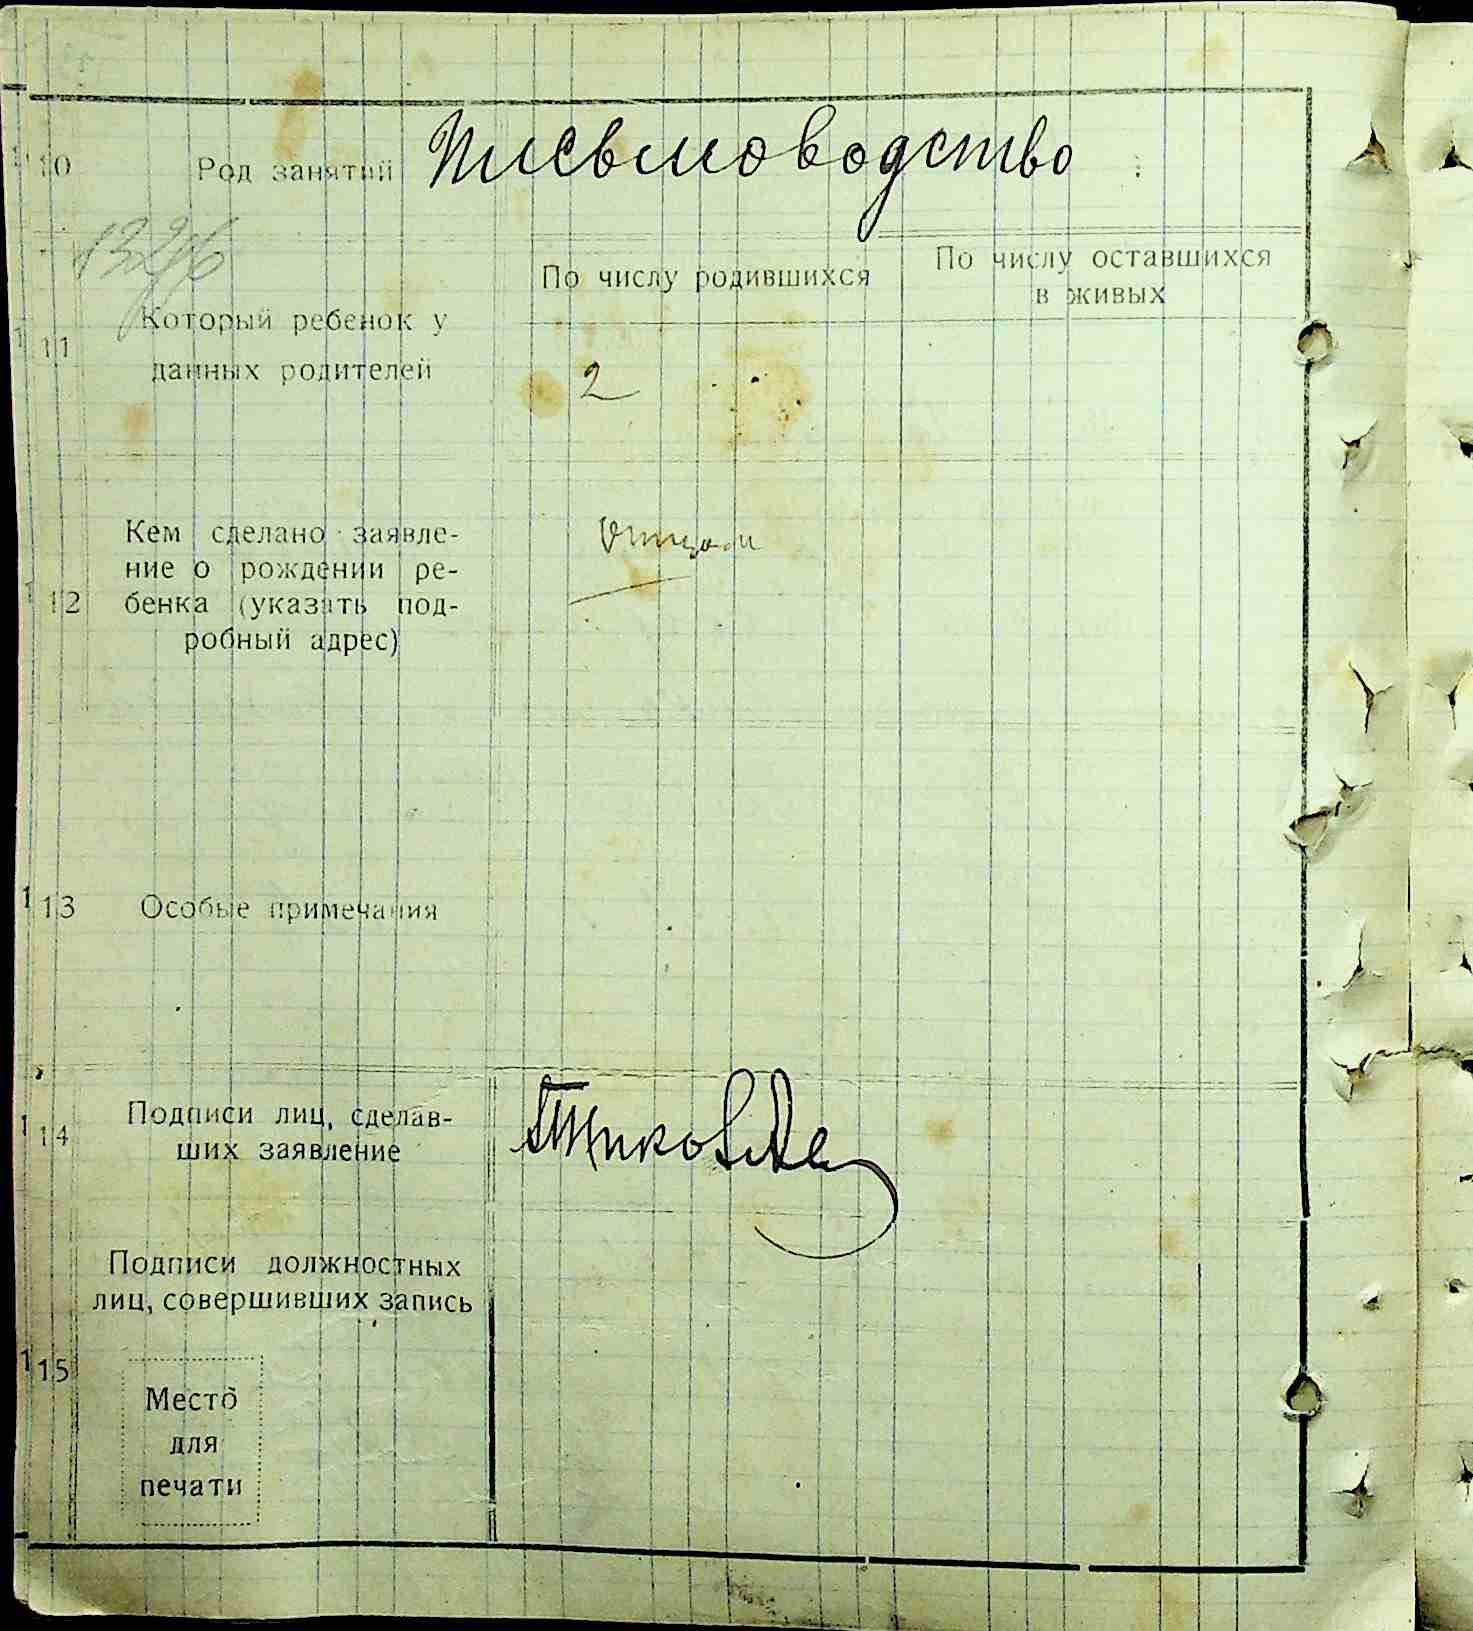 10 Род занятий Письмоводство
1326
По числу родившихся
По числу оставшихся
в живых
11 Который ребенок у
данных родителей
2
12 Кем сделано заявле-
ние о рождении ре-
бенка (указать под-
робный адрес)
Отцом
13 Особые примечания
14 Подписи лиц, сделав-
ших заявление
Подписи должностных
лиц, совершивших запись
15
Место
для
печати